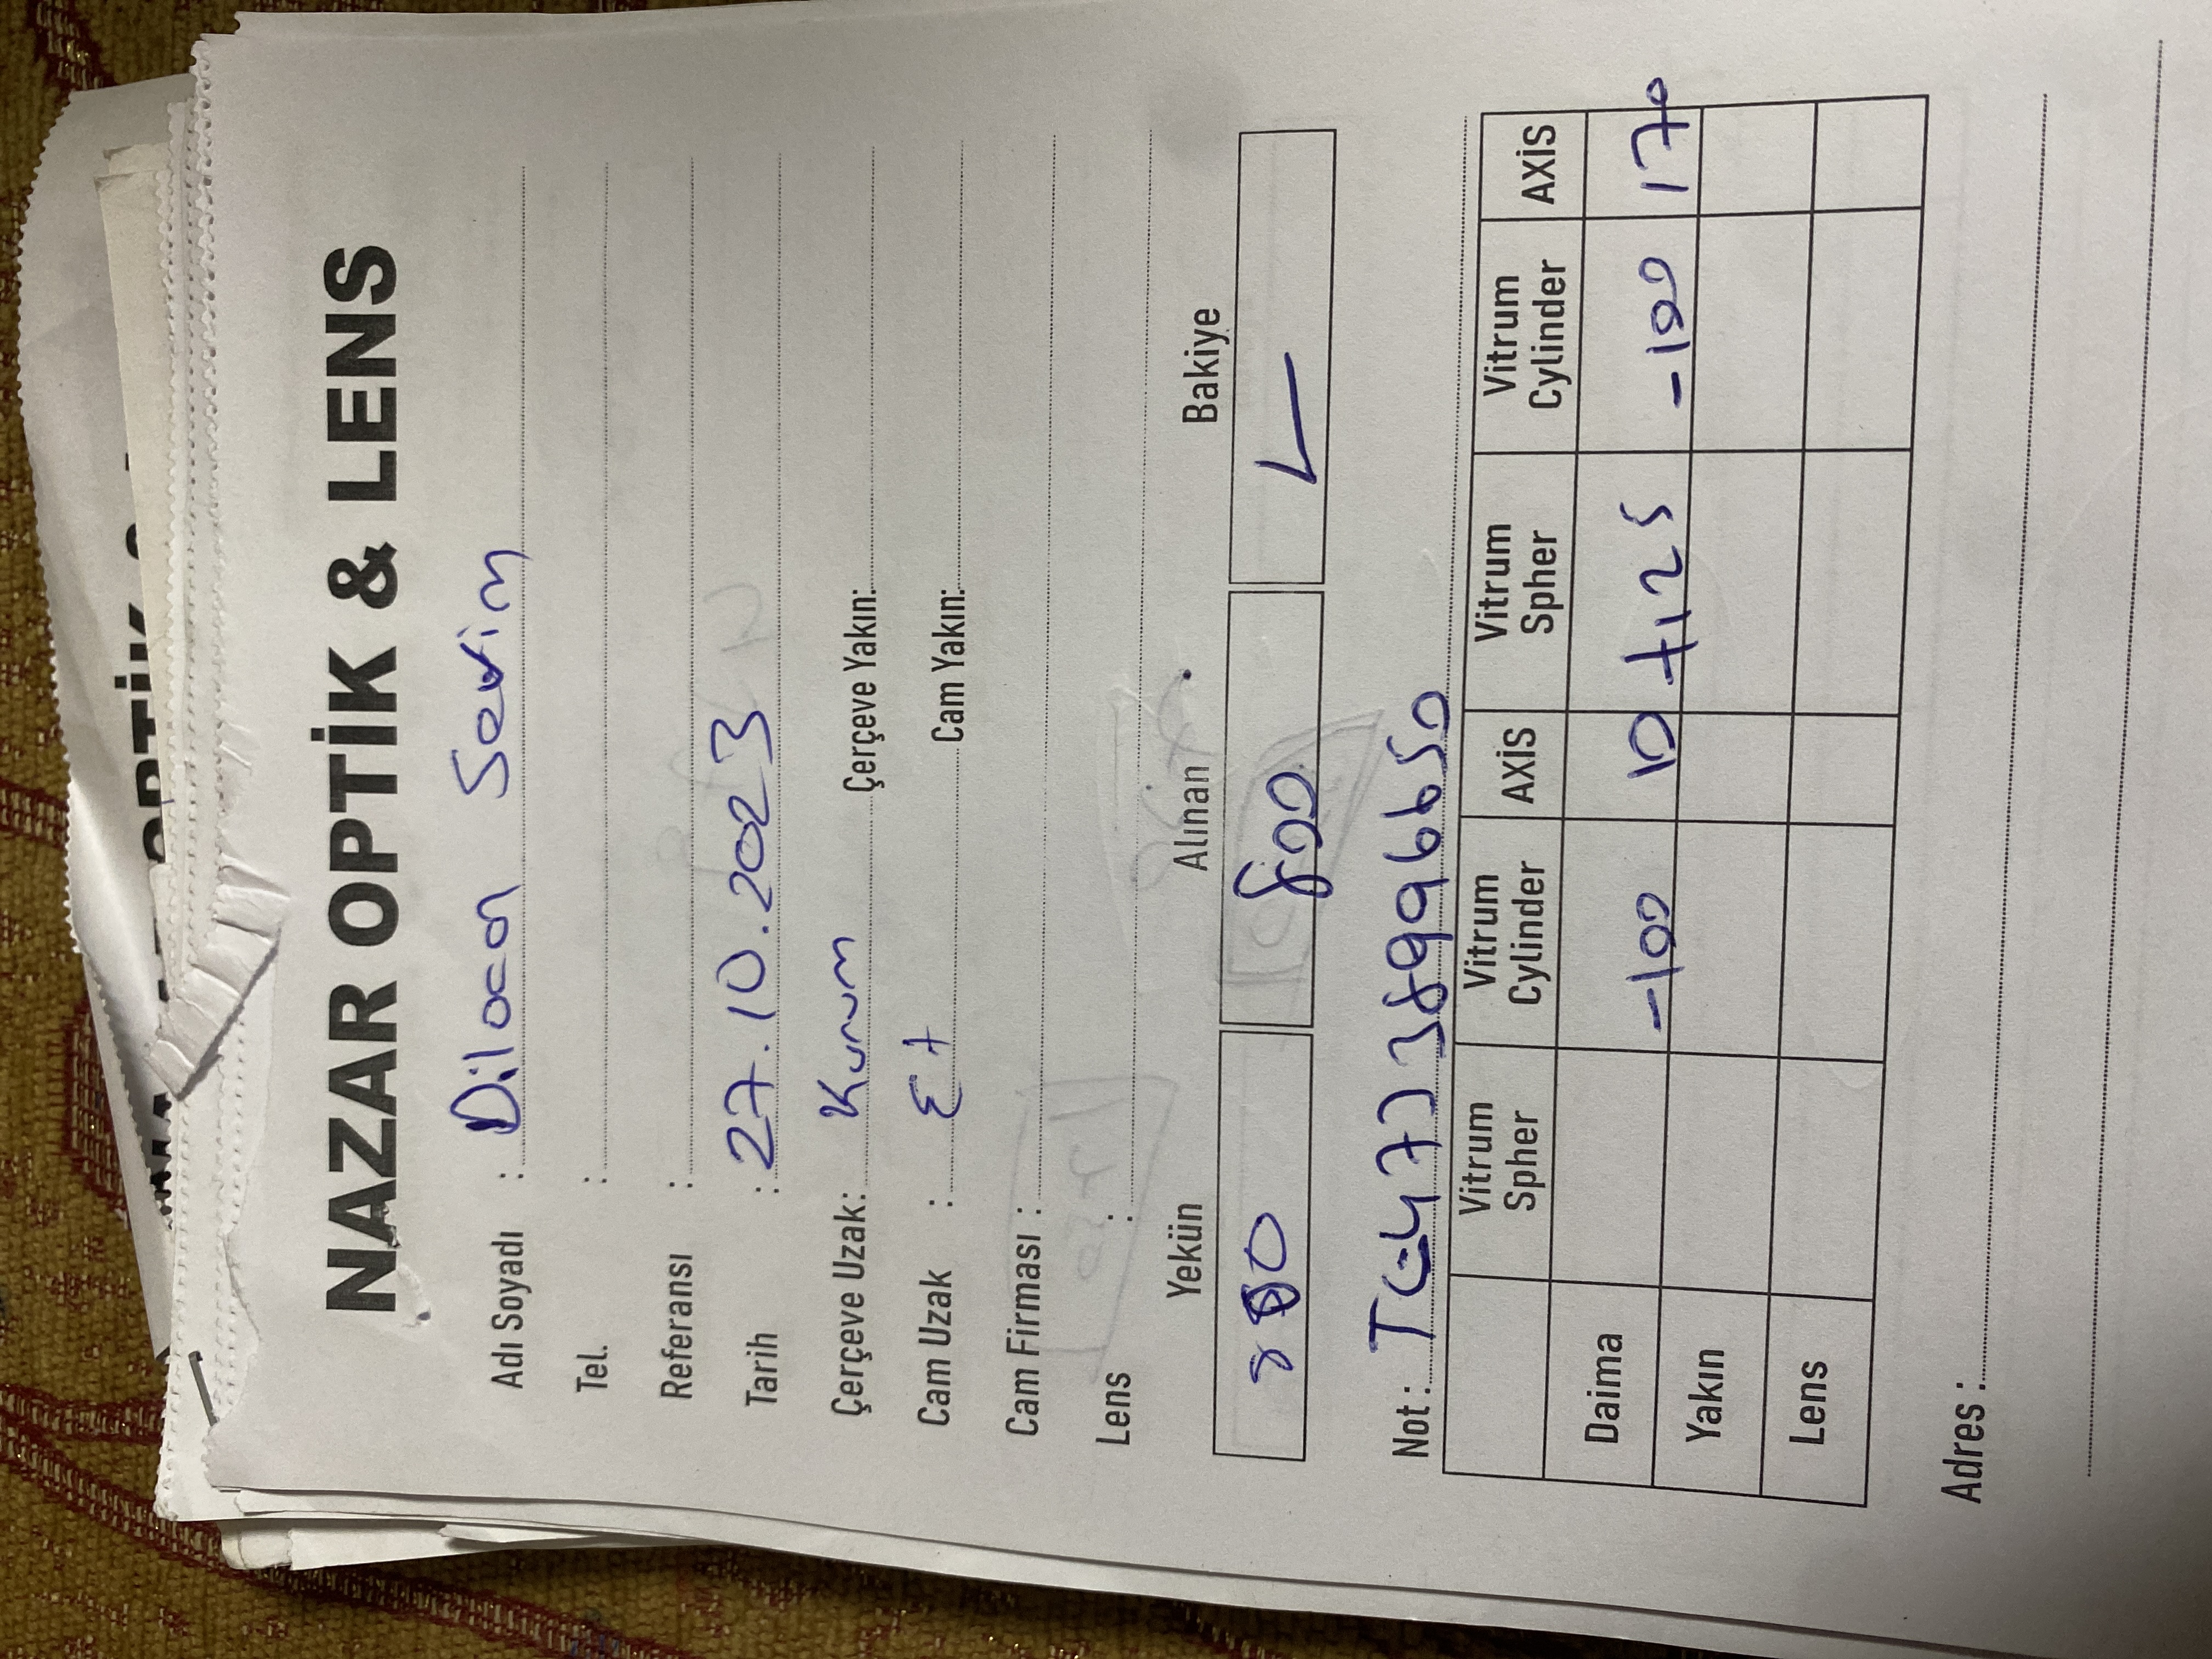 NAZAR OPTİK & LENS
Adı Soyadı : Dilocan Sevim
Tel. :
Referansı :
Tarih : 27.10.2023
Çerçeve Uzak: Kurum Çerçeve Yakın:
Cam Uzak : Cam Yakın:
Cam Firması :
Lens :
Yekün Alınan Bakiye
800 800
Not:
Vitrum Spher Vitrum Cylinder AXİS Vitrum Spher Vitrum Cylinder AXİS
Daima -100 10 +125 -100 170
Yakın
Lens
Adres :